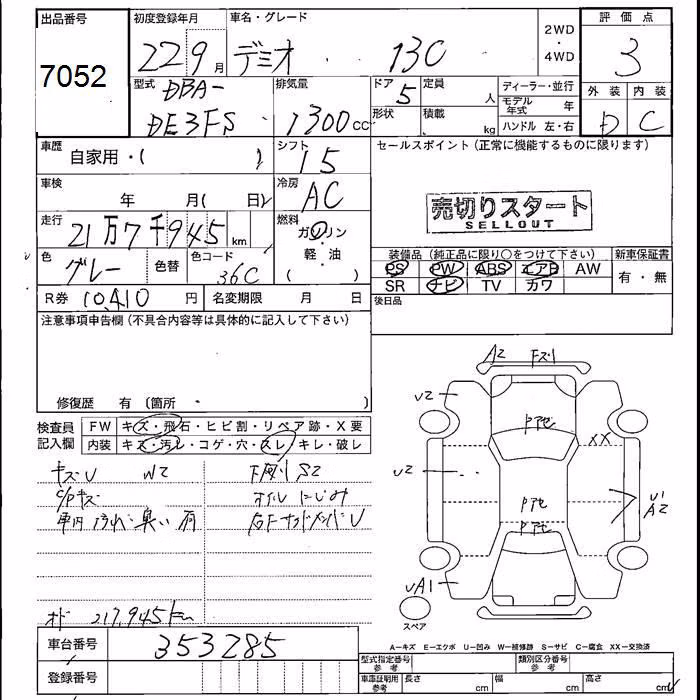 出品番号 7052
初度登録年月 22 9月
車名・グレード デミオ 13C
2WD・4WD
評価点 3
型式 DBA- DE3FS
排気量 1300cc
ドア 5 定員 人
形状 積載 kg
ディーラー・並行
モデル年式 年
ハンドル 左・右
外装 内装
D C
車歴 自家用・( )
シフト 15
セールスポイント(正常に機能するものに限ります)
車検 年 月( 日)
冷房 AC
売切りスタート
SELLOUT
走行 21万7千945km
燃料 ガソリン・軽油 ( )
色 グレー 色替 色コード 36C
装備品(純正品に限り○をつけて下さい) 新車保証書
PS PW ABS エアB AW 有・無
SR ナビ TV カワ
R券 10410円 名変期限 月 日
後日品
注意事項申告欄(不具合内容等は具体的に記入して下さい)
修復歴 有 (箇所 ・ )
検査員記入欄 FW キズ・飛石・ヒビ割・リペア跡・X要
内装 キズ・汚レ・コゲ・穴・スレ・キレ・破レ
キズU W2
下廻りS2
C/Pキズ
オイルにじみ
車内汚れ臭い有
オド 217,945km
車台番号 353285
登録番号
A2 Fズ1
U2
Pアセ
XX
U2
Pアセ
U1
A2
Pアセ
UA1
スペア
A-キズ E-エクボ U-凹み W-補修跡 S-サビ C-腐食 XX-交換済
型式指定番号 参考 類別区分番号 参考
車庫証明用 参考 長さ cm 幅 cm 高さ cm